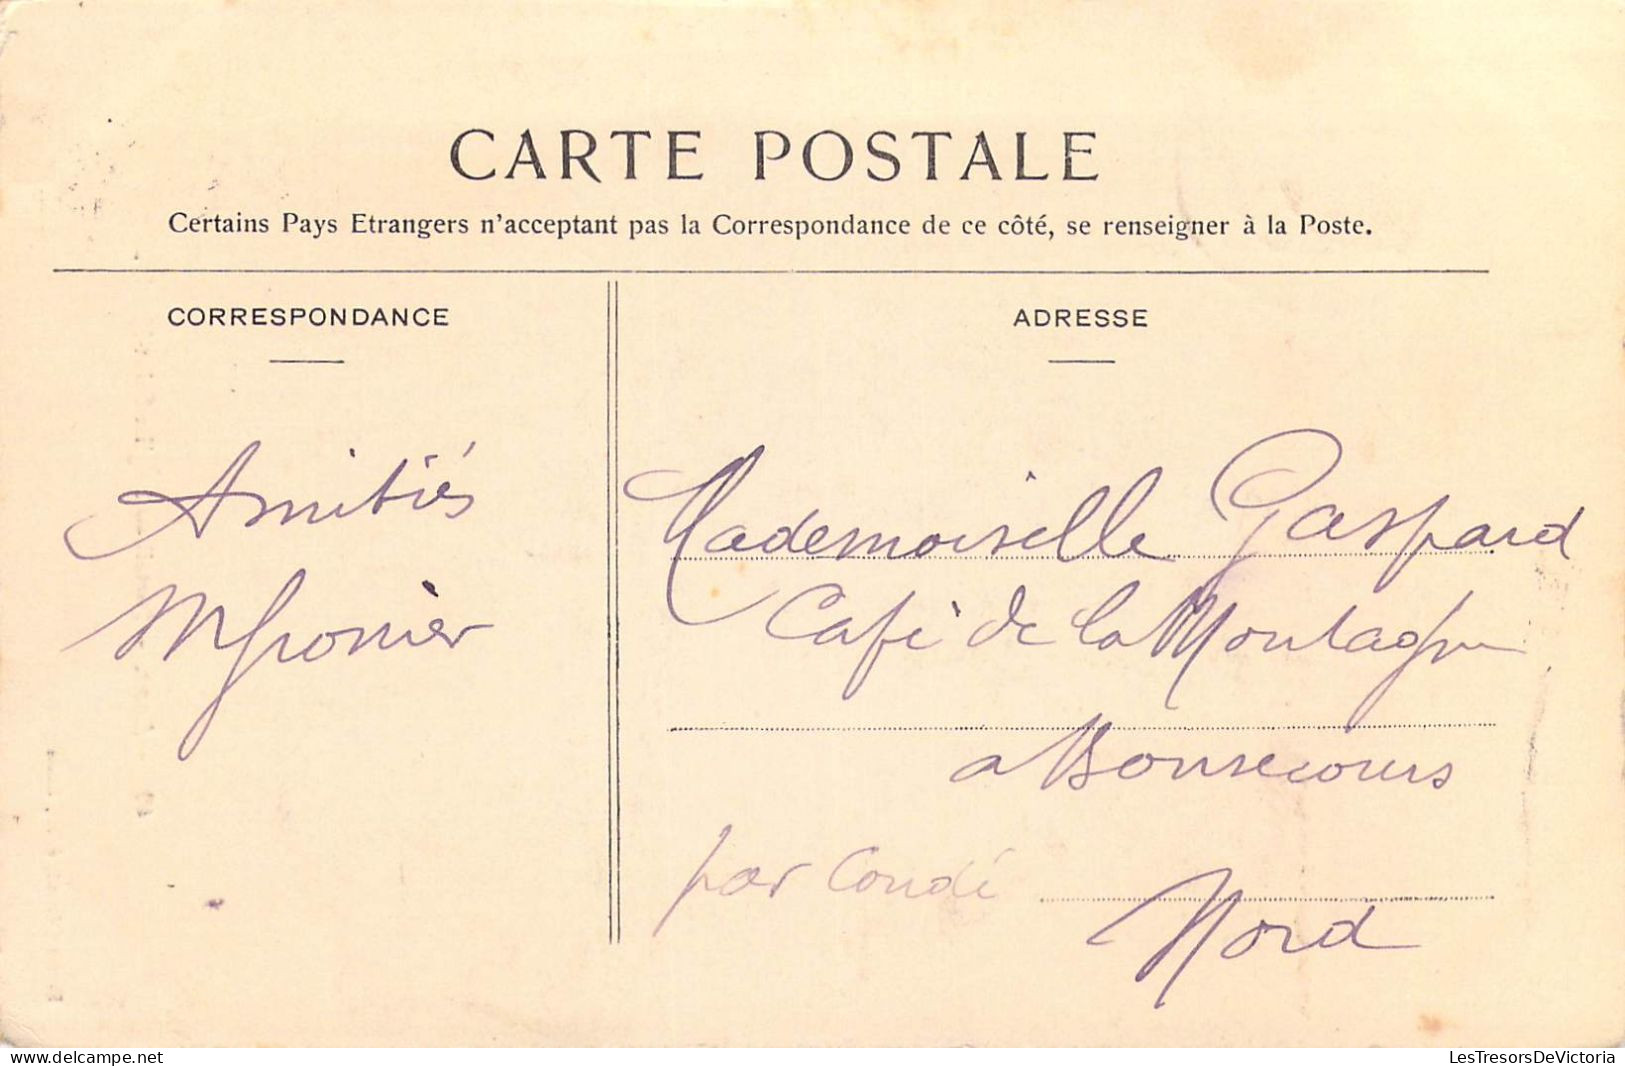 CARTE POSTALE
Certains Pays Etrangers n'acceptent pas la Correspondance de ce côté, se renseigner à la Poste.
CORRESPONDANCE
Amitiés
ADRESSE
Mademoiselle Gaspard
Café de la Montagne
a Bonsecours
par Condé
Nord
delcampe.net
LesTresorsDeVictoria